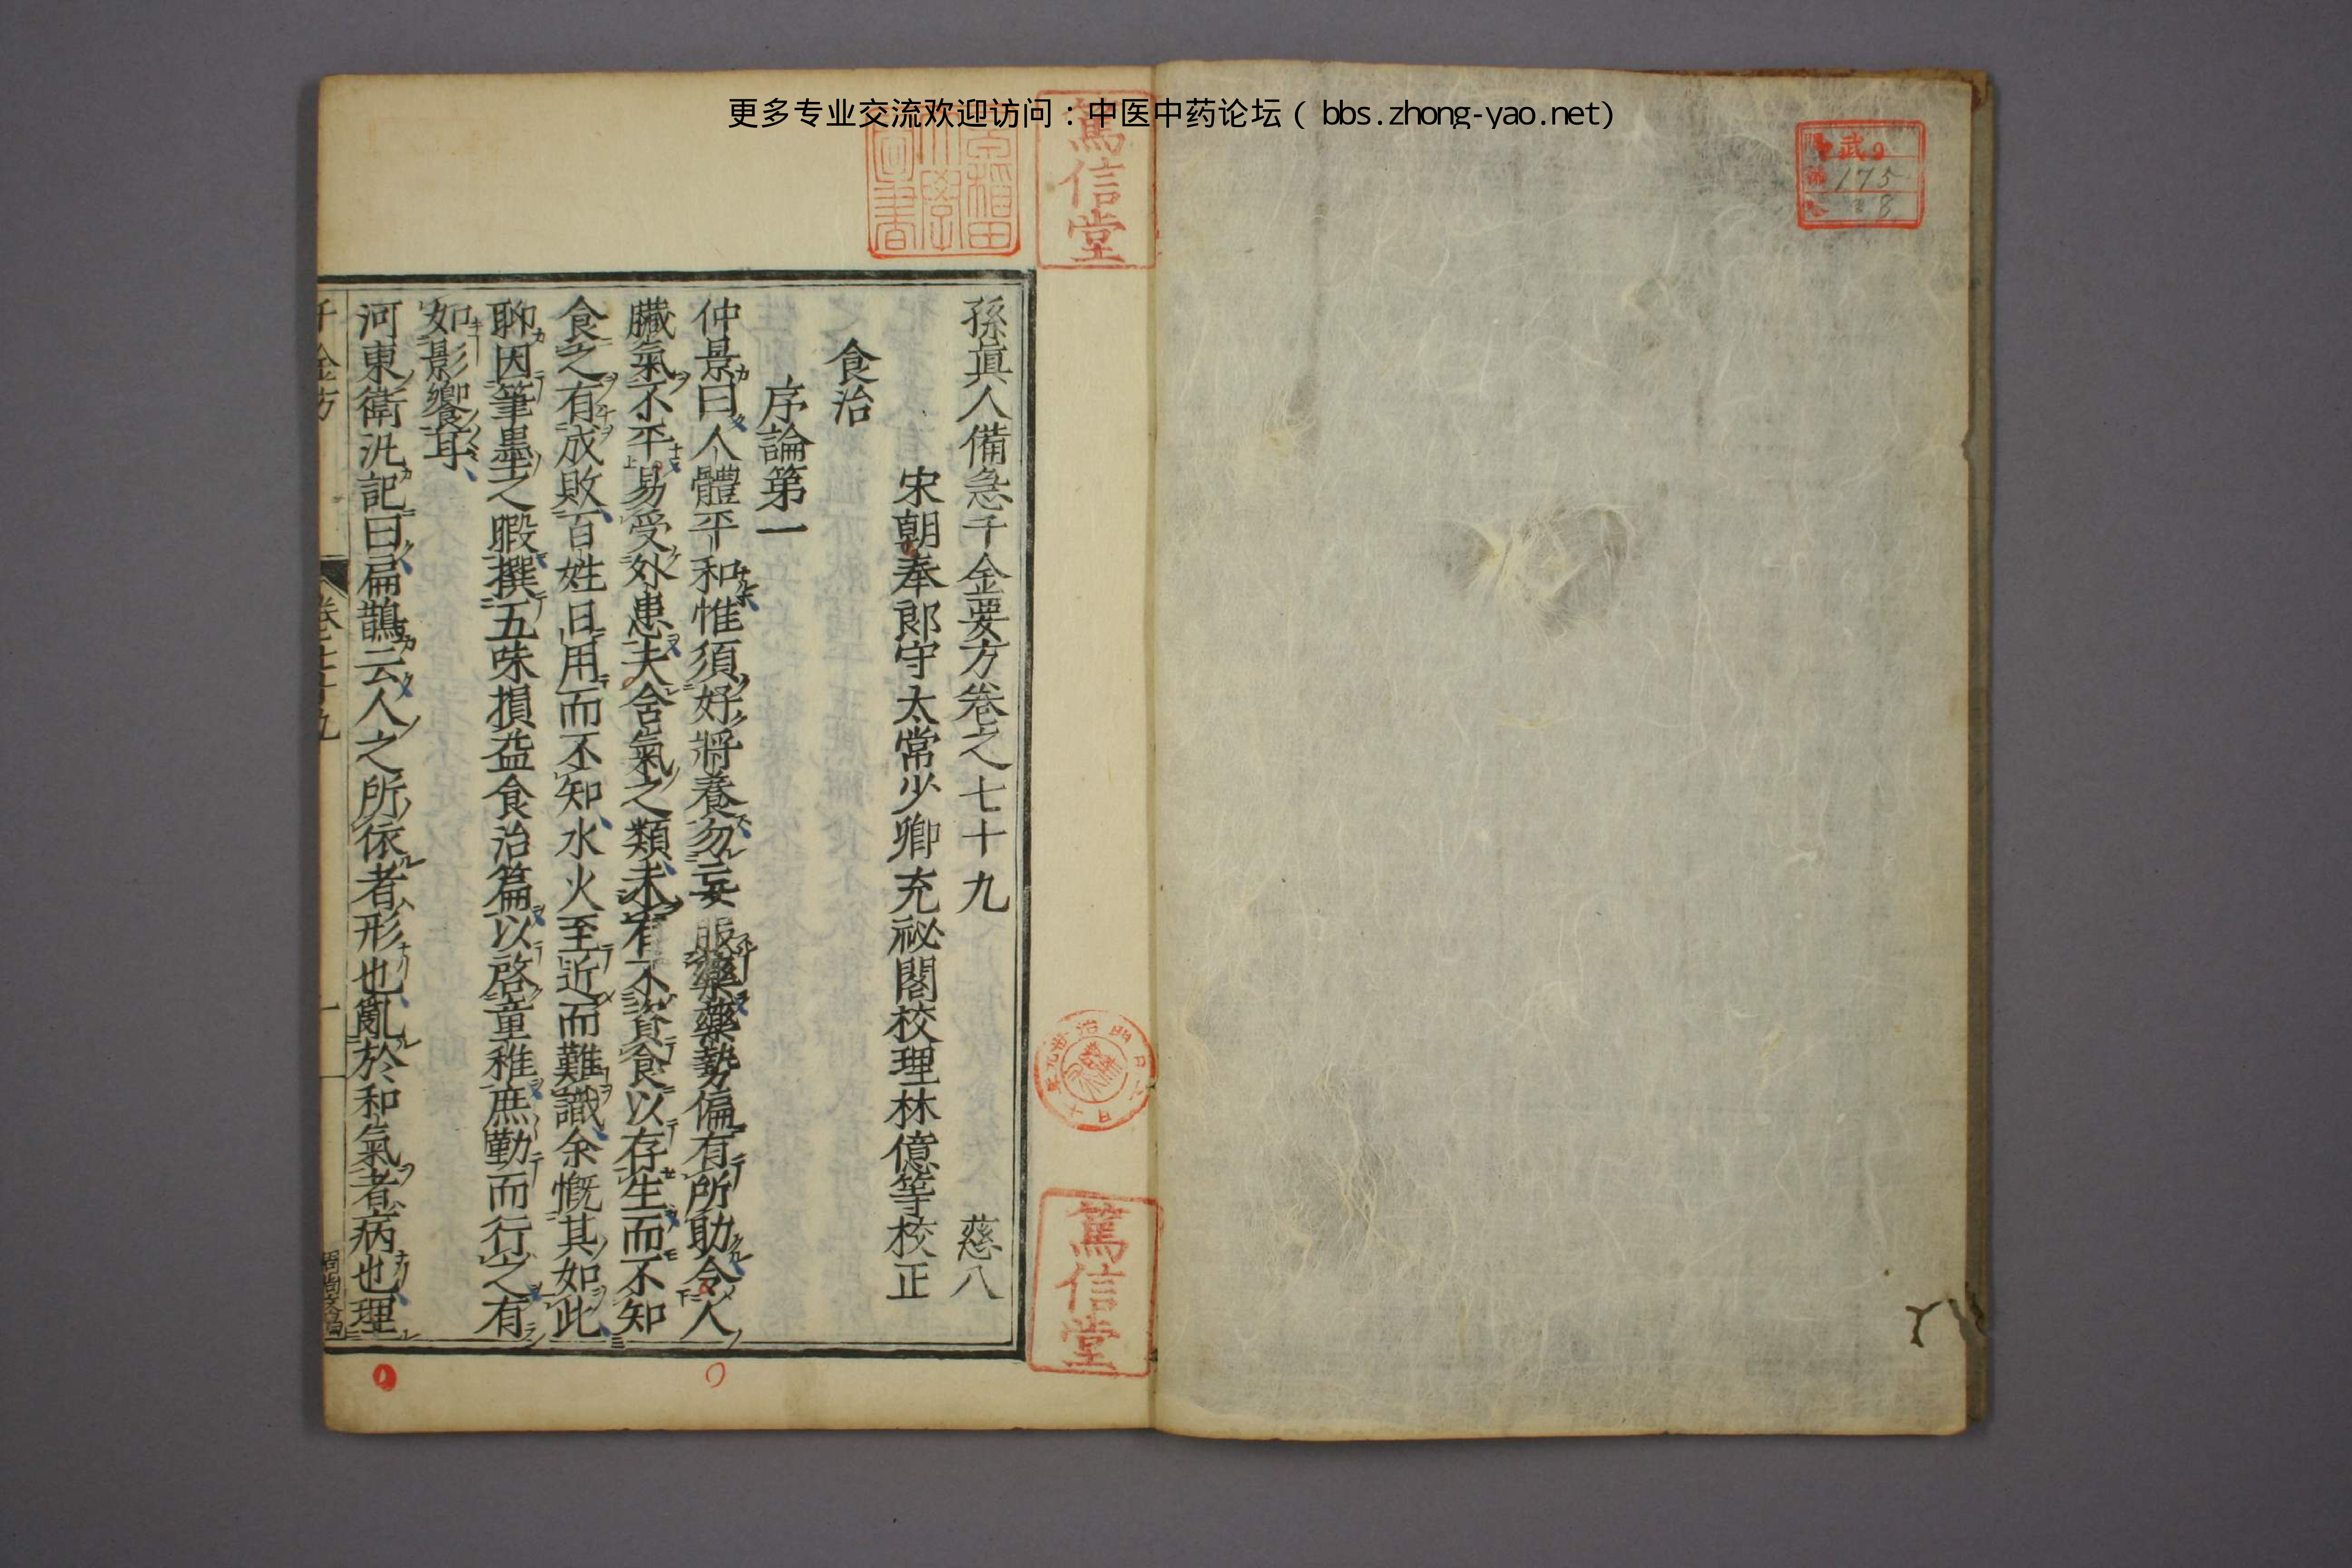 更多专业交流欢迎访问：中医中药论坛（bbs.zhong-yao.net）
武9
175
8
篤信堂
篤信堂
孫真人備急千金要方卷之七十九 慈八
宋朝奉郎守太常少卿充祕閣校理林億等校正
食治
序論第一
仲景曰人體平和惟須好將養勿妄服藥藥勢偏有所助令人
臟氣不平易受外患夫含氣之類未有不資食以存生而不知
食之有成敗百姓日用而不知水火至近而難識余慨其如此
聊因筆墨之暇撰五味損益食治篇以啓童稚庶勤而行之有
如影響耳
河東衛汎記曰扁鵲云人之所依者形也亂於和氣者病也理
千金方